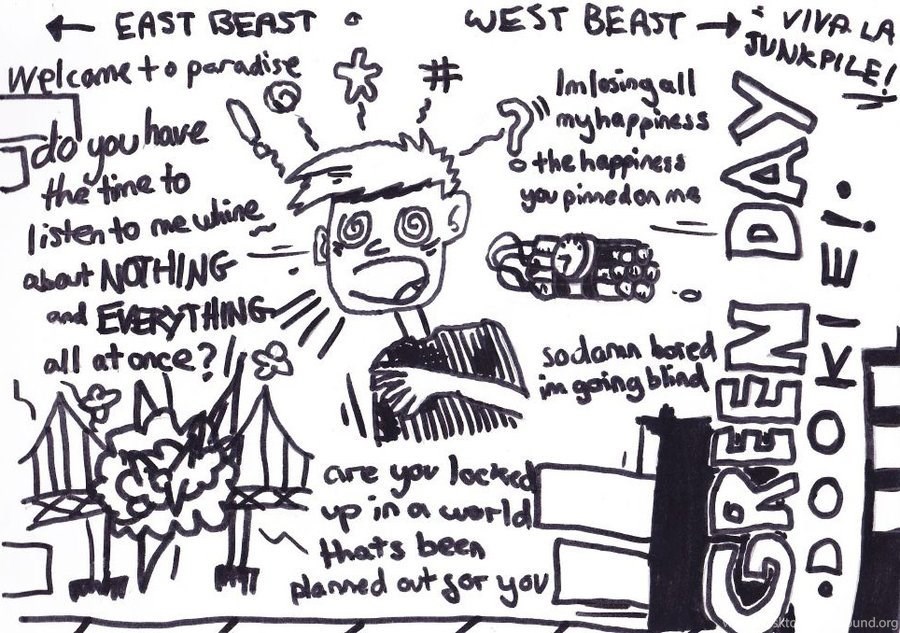 ← EAST BEAST
WEST BEAST →
VIVA LA
JUNKPILE!
Welcome to paradise
do you have
the time to
listen to me whine
about NOTHING
and EVERYTHING
all at once?
#
?
Im losing all
my happiness
the happiness
you pinned on me
so damn bored
im going blind
are you locked
up in a world
thats been
planned out for you
GREEN DAY
DOOKIE!